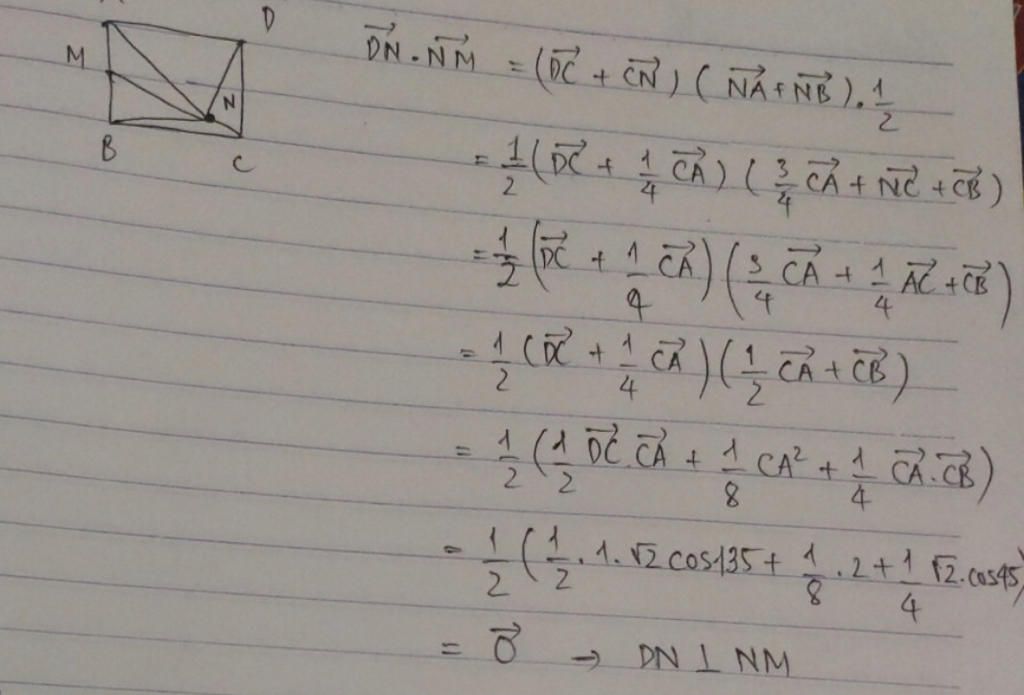 D
M
N
B
C
$\overrightarrow{DN}.\overrightarrow{NM} = (\overrightarrow{DC} + \overrightarrow{CN})(\overrightarrow{NA} + \overrightarrow{NB}).\frac{1}{2}$
$= \frac{1}{2}(\overrightarrow{DC} + \frac{1}{4}\overrightarrow{CA})(\frac{3}{4}\overrightarrow{CA} + \overrightarrow{NC} + \overrightarrow{CB})$
$= \frac{1}{2}(\overrightarrow{DC} + \frac{1}{4}\overrightarrow{CA})(\frac{3}{4}\overrightarrow{CA} + \frac{1}{4}\overrightarrow{AC} + \overrightarrow{CB})$
$= \frac{1}{2}(\overrightarrow{DC} + \frac{1}{4}\overrightarrow{CA})(\frac{1}{2}\overrightarrow{CA} + \overrightarrow{CB})$
$= \frac{1}{2}(\frac{1}{2}\overrightarrow{DC}.\overrightarrow{CA} + \frac{1}{8}CA^2 + \frac{1}{4}\overrightarrow{CA}.\overrightarrow{CB})$
$= \frac{1}{2}(\frac{1}{2}.1.\sqrt{2}\cos 135 + \frac{1}{8}.2 + \frac{1}{4}\sqrt{2}.\cos 45)$
$= \overrightarrow{0} \rightarrow DN \perp NM$